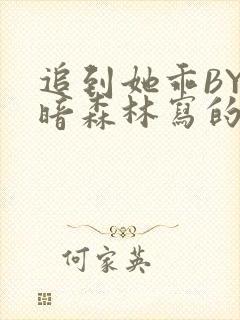 追到她乖BY
暗森林寫的
何家英